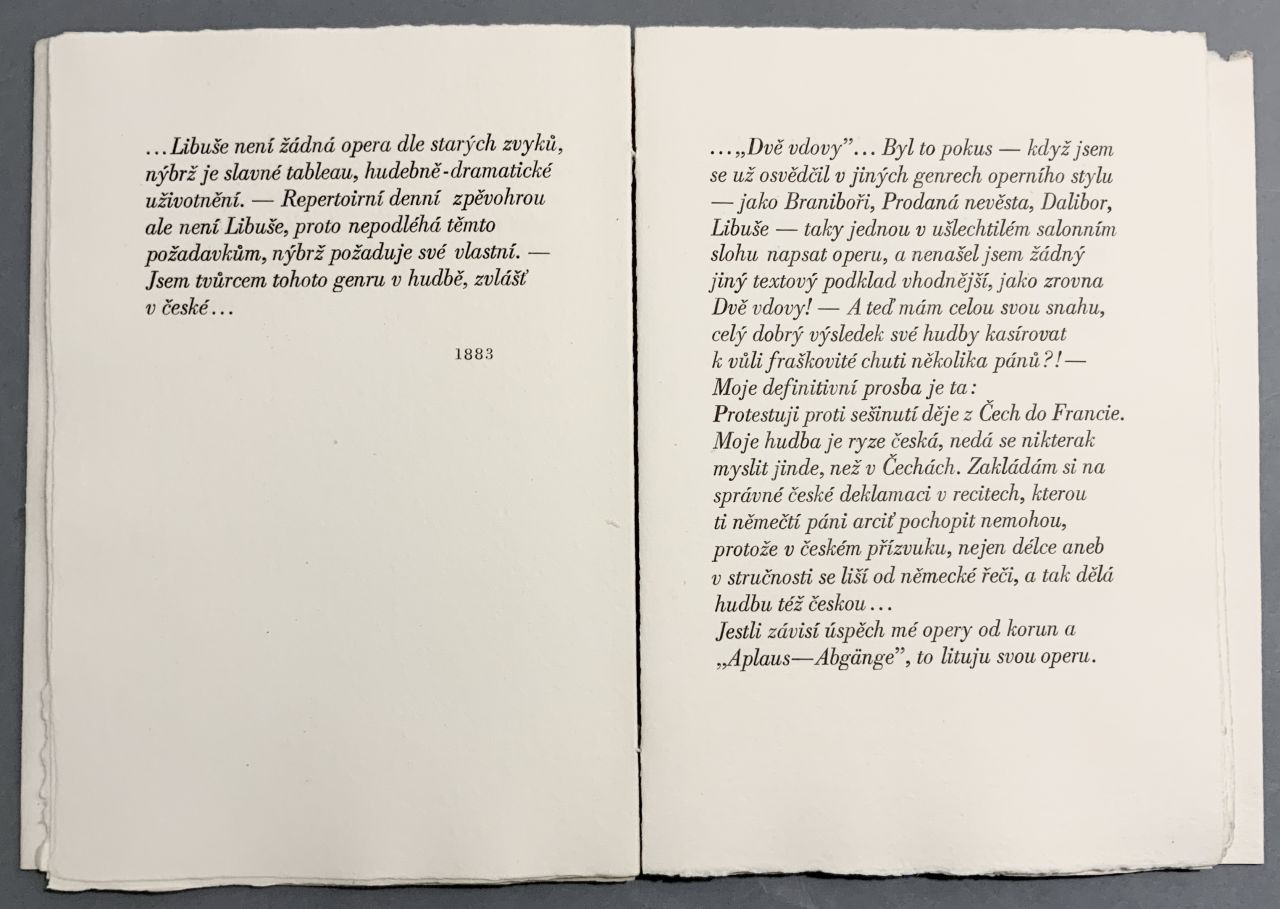 ...Libuše není žádná opera dle starých zvyků,
nýbrž je slavné tableau, hudebně-dramatické
uživotnění. — Repertoirní denní zpěvohrou
ale není Libuše, proto nepodléhá těmto
požadavkům, nýbrž požaduje své vlastní. —
Jsem tvůrcem tohoto genru v hudbě, zvlášť
v české...
1883
...„Dvě vdovy”... Byl to pokus — když jsem
se už osvědčil v jiných genrech operního stylu
— jako Braniboři, Prodaná nevěsta, Dalibor,
Libuše — taky jednou v ušlechtilém salonním
slohu napsat operu, a nenašel jsem žádný
jiný textový podklad vhodnější, jako zrovna
Dvě vdovy! — A teď mám celou svou snahu,
celý dobrý výsledek své hudby kasírovat
k vůli fraškovité chuti několika pánů?! —
Moje definitivní prosba je ta:
Protestuji proti sešinutí děje z Čech do Francie.
Moje hudba je ryze česká, nedá se nikterak
myslit jinde, než v Čechách. Zakládám si na
správné české deklamaci v recitech, kterou
ti němečtí páni arciť pochopit nemohou,
protože v českém přízvuku, nejen délce aneb
v stručnosti se liší od německé řeči, a tak dělá
hudbu též českou...
Jestli závisí úspěch mé opery od korun a
„Aplaus—Abgänge”, to lituju svou operu.